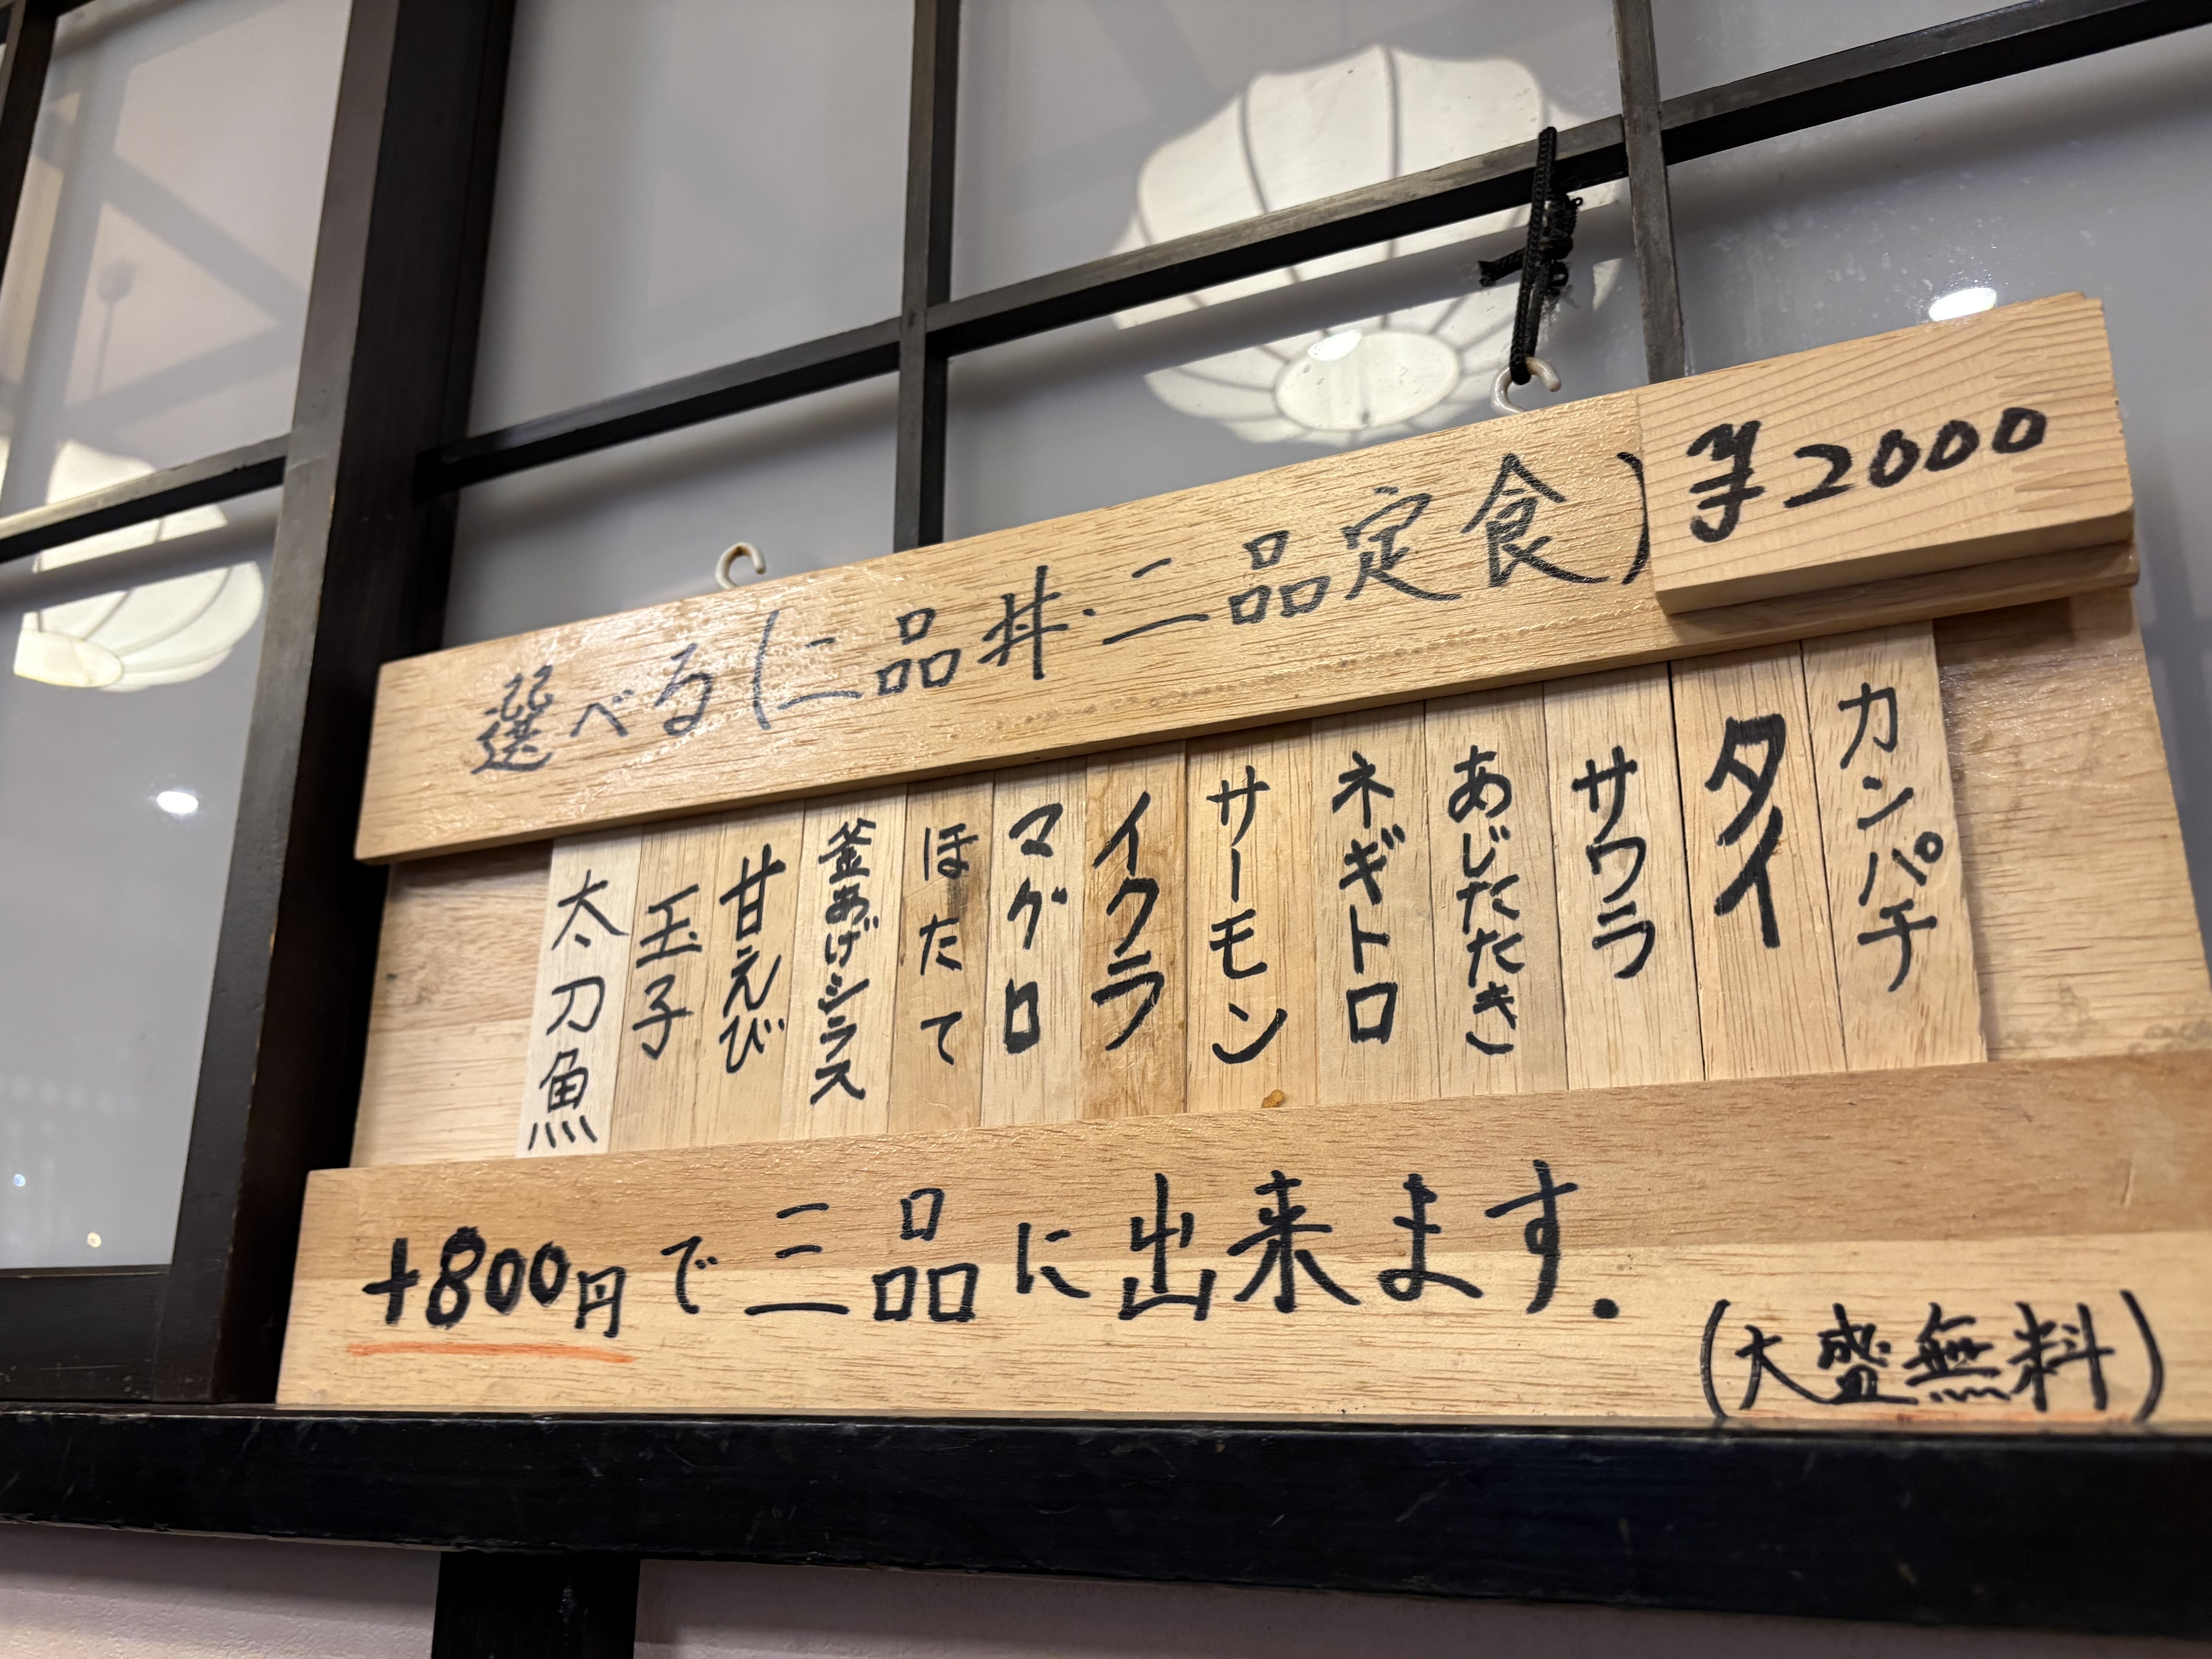 選べる(二品丼・二品定食) ¥2000
カンパチ
タイ
サワラ
あじたたき
ネギトロ
サーモン
イクラ
マグロ
ほたて
釜あげシラス
甘えび
玉子
太刀魚
+800円で三品に出来ます.
(大盛無料)